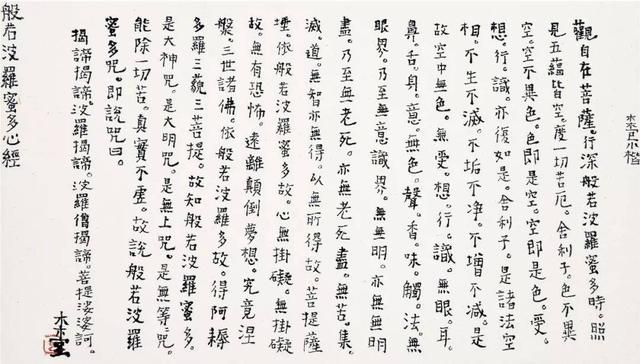 小楷
觀自在菩薩。行深般若波羅蜜多時。照
見五蘊皆空。度一切苦厄。舍利子。色不異
空。空不異色。色即是空。空即是色。受。
想。行。識。亦復如是。舍利子。是諸法空
相。不生不滅。不垢不净。不增不減。是
故空中無色。無受。想。行。識。無眼。耳。
鼻。舌。身。意。無色。聲。香。味。觸。法。無
眼界。乃至無意識界。無無明。亦無無明
盡。乃至無老死。亦無老死盡。無苦。集。
滅。道。無智亦無得。以無所得故。菩提薩
埵。依般若波羅蜜多故。心無掛礙。無掛礙
故。無有恐怖。遠離顛倒夢想。究竟涅
槃。三世諸佛。依般若波羅蜜多故。得阿耨
多羅三藐三菩提。故知般若波羅蜜多。
是大神咒。是大明咒。是無上咒。是無等等咒。
能除一切苦。真實不虛。故說般若波羅
蜜多咒。即說咒曰。
揭諦揭諦。波羅揭諦。波羅僧揭諦。菩提娑婆訶。
般若波羅蜜多心經